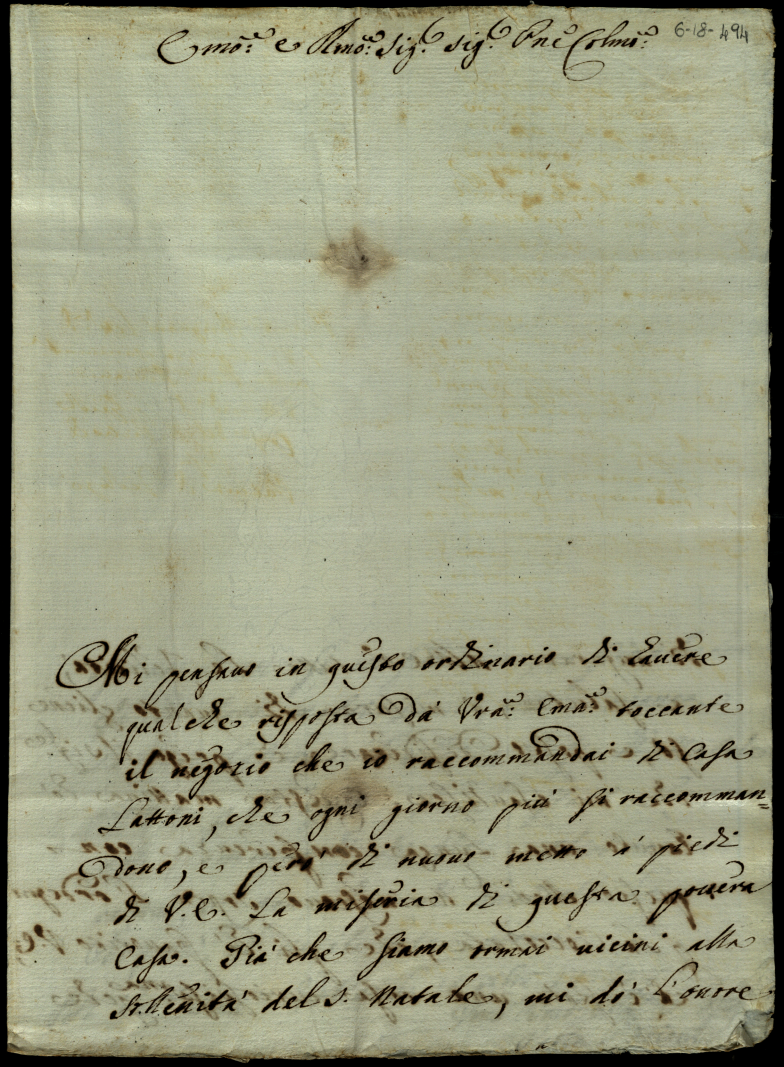 Emo: e Rmo: Sig: Sig: Pne Colmo: 6-18-494
Mi pensavo in questo ordinario di havere
qualche risposta da Vra: Ema: toccante
il negozio che io raccommandai di Casa
Lattoni, che ogni giorno più si raccomman=
dono, e però di nuovo metto a' piedi
di V.E. la miseria di questa povera
Casa. Già che siamo ormai vicini alla
sollenità del S. Natale, mi dò l'onore